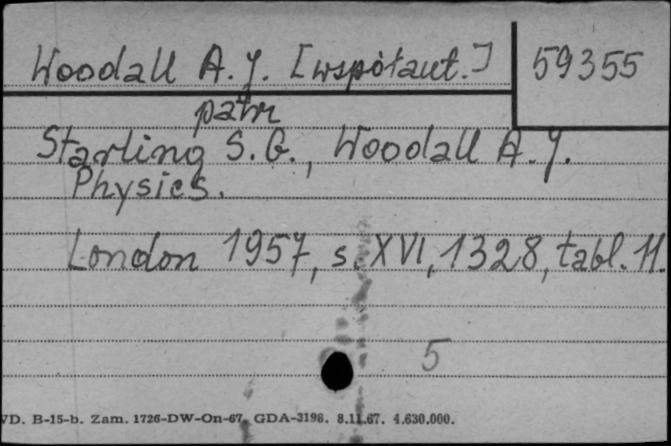 Woodall A. J. [współaut.] 59355
patrz
Starling S. G., Woodall A. J.
Physics.
London 1957, s. XVI, 1328, tabl. 11.
5
VD. B-15-b. Zam. 1726-DW-On-67. GDA-3198. 8.11.67. 4.630.000.